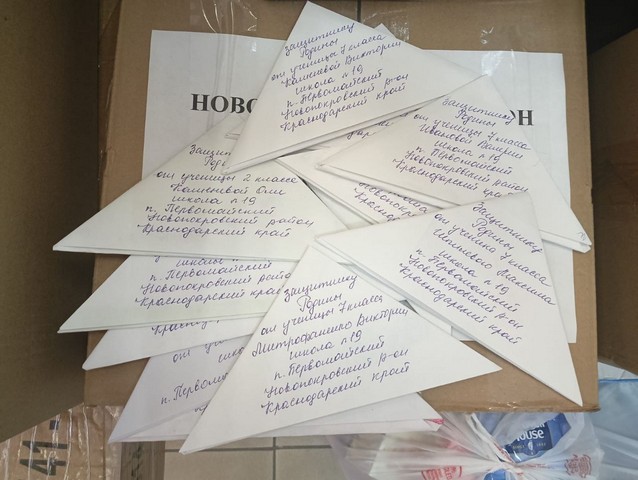 НОВО
ОН
Защитнику
Родины
от ученицы 7 класса
Каменевой Виктории
школа №19
п. Первомайский
Новопокровский р-он
Краснодарский край
Защитнику
Родины
от ученицы 7 класса
Ивановой Валерии
школа №19
п. Первомайский
Новопокровский район
Краснодарский край
Защит
Род
от ученицы 2 класса
Каменевой Оли
школа №19
п. Первомайский
Новопокровский район
Краснодарский край
Защитнику
Родины
от ученика 7 класса
Максима
школа №19
п. Первомайский
Новопокровский р-он
Краснодарский край
школы
п. Первомайский
Новопокровский райо
Краснодарский край
Защитнику
Родины
от ученицы 7 класса
Виктории
школа №19
п. Первомайский
Новопокровский р-он
Краснодарский край
от уче
шко
п. Первома
House
41